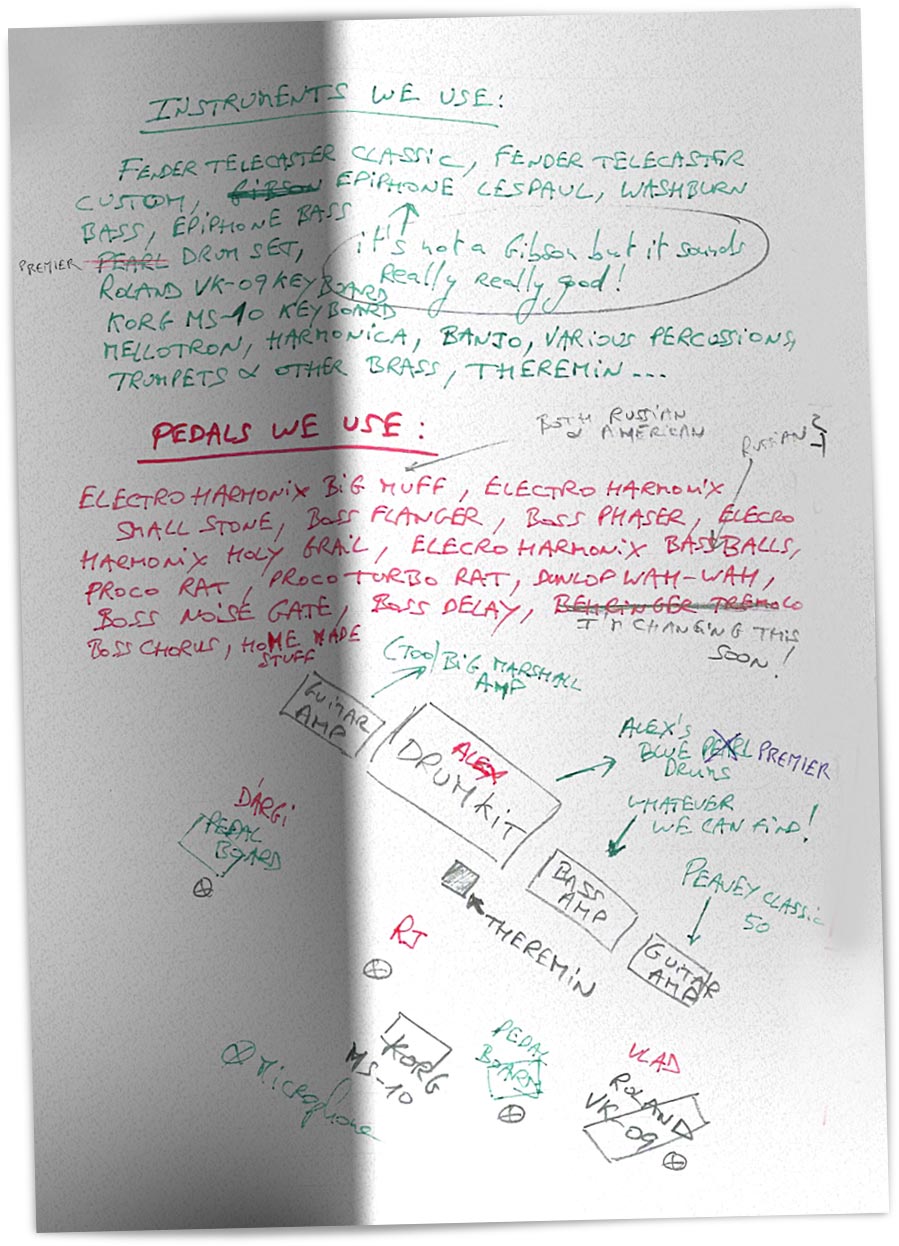 INSTRUMENTS WE USE:
FENDER TELECASTER CLASSIC, FENDER TELECASTER
CUSTOM, GIBSON EPIPHONE LESPAUL, WASHBURN
BASS, EPIPHONE BASS
it's not a Gibson but it sounds
really really good!
PREMIER PEARL DRUM SET,
ROLAND VK-09 KEYBOARD
KORG MS-10 KEYBOARD
MELLOTRON, HARMONICA, BANJO, VARIOUS PERCUSSIONS,
TRUMPETS & OTHER BRASS, THEREMIN...
PEDALS WE USE:
BOTH RUSSIAN
& AMERICAN
RUSSIAN
ELECTRO HARMONIX BIG MUFF, ELECTRO HARMONIX
SMALL STONE, BOSS FLANGER, BOSS PHASER, ELECRO
HARMONIX HOLY GRAIL, ELECRO HARMONIX BASSBALLS,
PROCO RAT, PROCO TURBO RAT, DUNLOP WAH-WAH,
BOSS NOISE GATE, BOSS DELAY, BEHRINGER TREMOLO
I'M CHANGING THIS
SOON!
BOSS CHORUS, HOME MADE
STUFF
(TOO) BIG MARSHALL
AMP
GUITAR
AMP
ALEX
DRUMKIT
ALEX'S
BLUE PEARL PREMIER
DRUMS
WHATEVER
WE CAN FIND!
DARGI
PEDAL
BOARD
BASS
AMP
PEAVEY CLASSIC
50
GUITAR
AMP
THEREMIN
RJ
KORG
MS-10
PEDAL
BOARD
VLAD
ROLAND
VK-09
Microphone